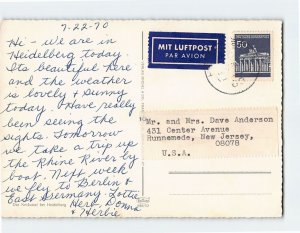 7-22-70
Hi - we are in
Heidelberg today.
Its beautiful here
and the weather
is lovely & sunny
today. Have really
been seeing the
sights. Tomorrow
we take a trip up
the Rhine River by
boat. Next week
we fly to Berlin &
East Germany. Lottie,
Herb, Donna
& Herbie
MIT LUFTPOST
PAR AVION
50
Mr. and Mrs. Dave Anderson
431 Center Avenue
Runnemede, New Jersey,
08078
U.S.A.